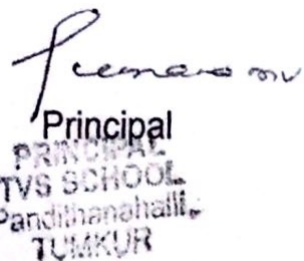 Principal
PRINCIPAL
TVS SCHOOL
Pandithanahalli,
TUMKUR